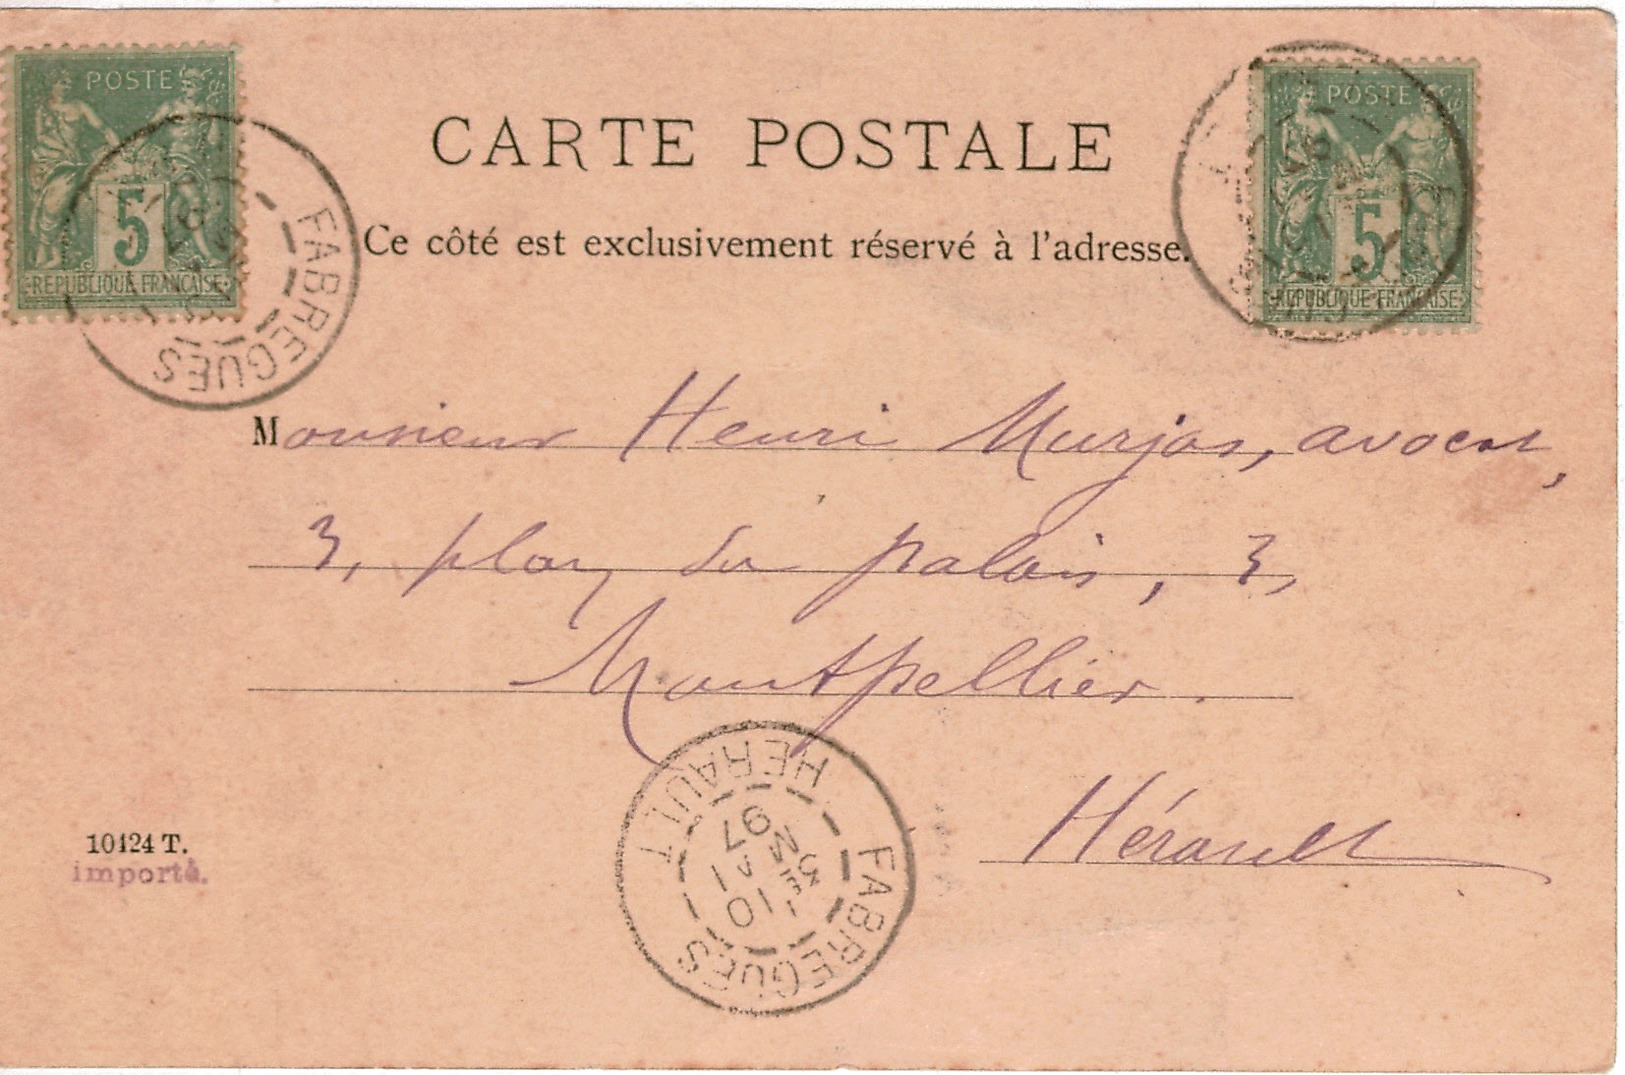 POSTE
5
REPUBLIQUE FRANÇAISE
FABREGUES
97
POSTE
5
REPUBLIQUE FRANÇAISE
CARTE POSTALE
Ce côté est exclusivement réservé à l'adresse.
Monsieur Henri Murjas, avocat,
3, plan du palais, 3,
Montpellier.
Hérault
10124 T.
importé.
FABREGUES
HERAULT
3E
10
MAI
97